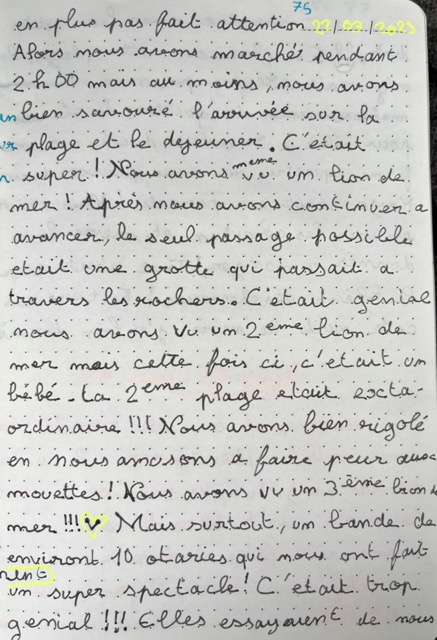 75
en plus pas fait attention 22/02/2023
Alors nous avons marché pendant
2 h 00 mais au moins, nous avons
bien savouré l'arrivée sur la
plage et le dejeuner. C'était
super ! Nous avons meme vu un lion de
mer ! Après nous avons continuer a
avancer, le seul passage possible
etait une grotte qui passait a
travers les rochers. C'était genial
nous avons vu un 2 eme lion de
mer mais cette fois ci, c'était un
bébé. La 2 eme plage etait exta-
ordinaire !!! Nous avons bien rigolé
en nous amusons a faire peur aux
mouettes ! Nous avons vu un 3 ème lion de
mer !!! Mais surtout, un bande de
environt 10 otaries qui nous ont fait
un super spectacle ! C'était trop
genial !!! Elles essayaient de nous